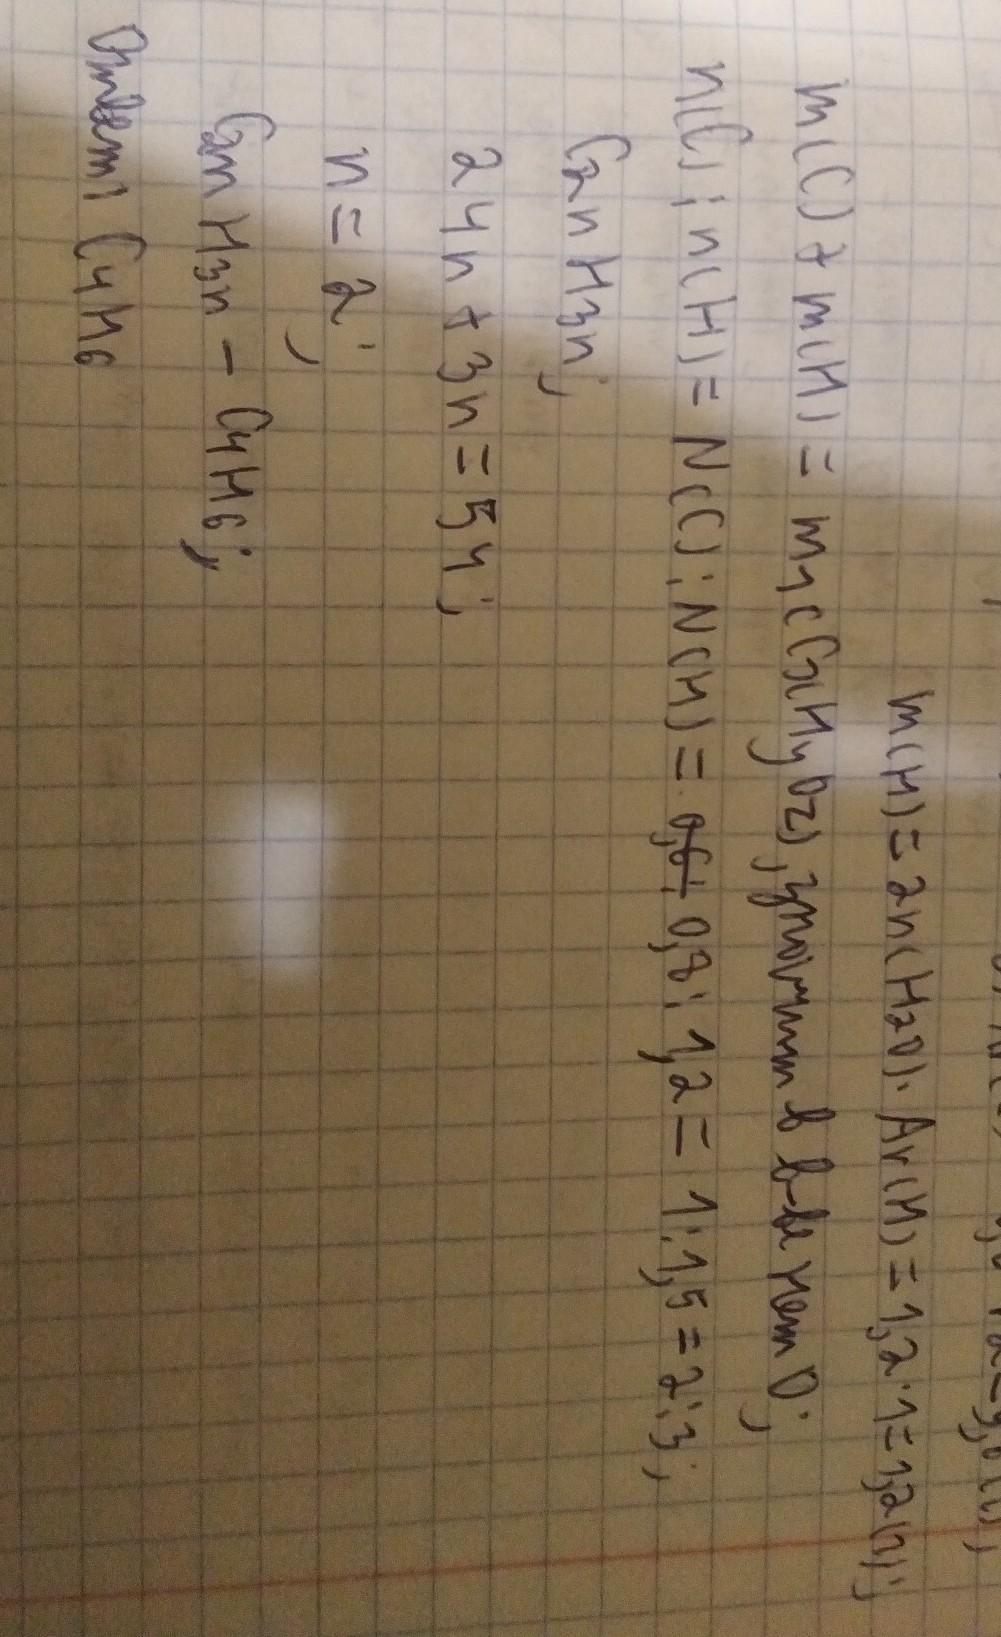 m(H) = 2n(H2O) · Ar(H) = 1,2 · 1 = 1,2(г);
m(C) + m(H) = m1(CxHyOz), значит в в-ве нет O;
n(C) : n(H) = N(C) : N(H) = 0,6 : 0,8 : 1,2 = 1 : 1,5 = 2 : 3;
C2nH3n;
24n + 3n = 54;
n = 2;
C2nH3n – C4H6;
Ответ: C4H6